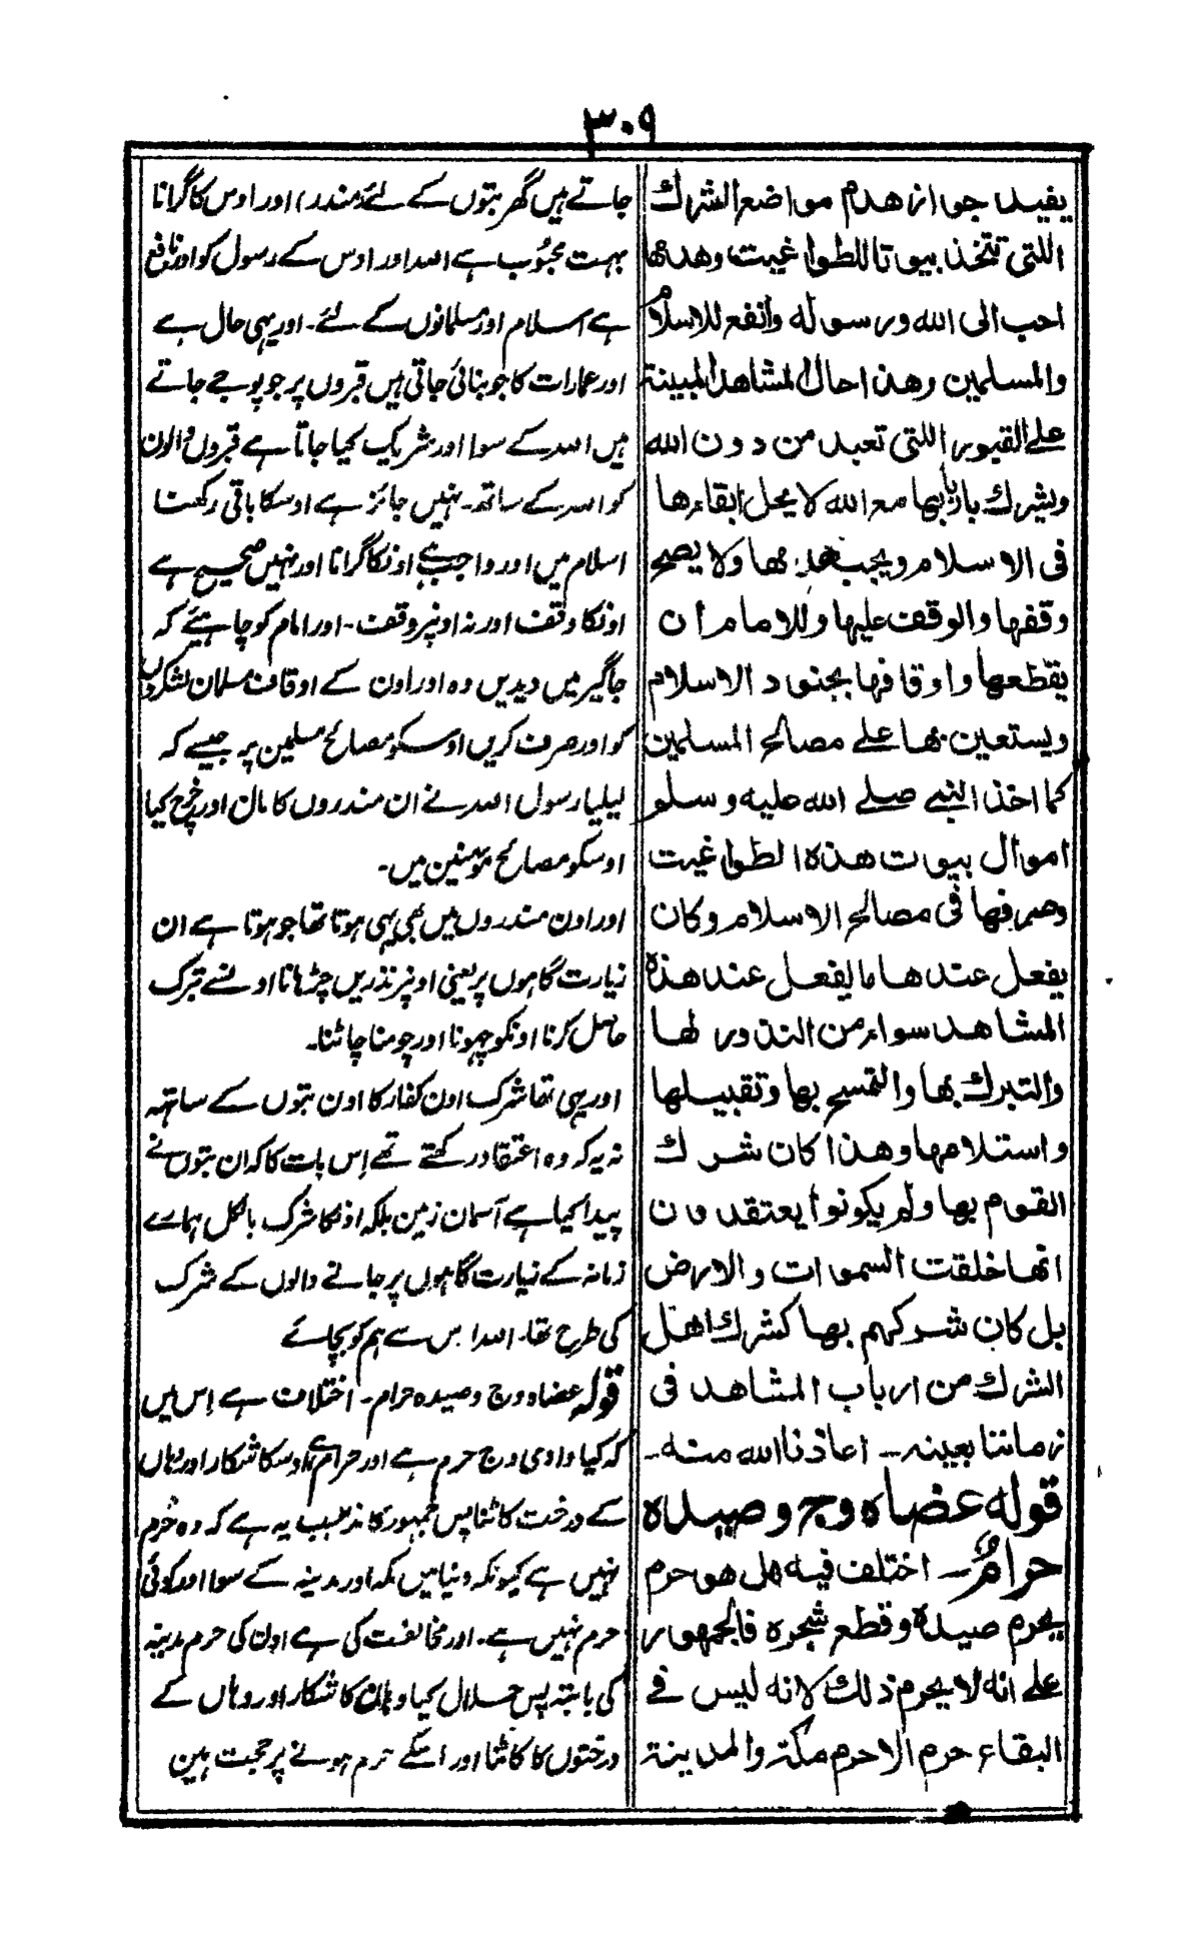 ۳۰۹
يفيد جواز هدم مواضع الشرك
اللتى تتخذ بيوتا للطواغيت وهدمها
احب الى الله ورسوله وانفع للاسلام
والمسلمين وهذا حال المشاهد المبينة
على القبور اللتى تعبد من دون الله
ويشرك باربابها مع الله لا يحل ابقاءها
فى الاسلام ويجب هدمها ولا يصح
وقفها والوقف عليها وللامام ان
يقطعها واوقافها بجنود الاسلام
ويستعين بها على مصالح المسلمين
كما اخذ النبى صلى الله عليه وسلم
اموال بيوت هذه الطواغيت
وصرفها فى مصالح الاسلام وكان
يفعل عندها ما يفعل عند هذه
المشاهد سواء من النذور لها
والتبرك بها والتمسح بها وتقبيلها
واستلامها وهذا كان شرك
القوم بها ولم يكونوا يعتقدون
انها خلقت السموات والارض
بل كان شركهم بها كشرك اهل
الشرك من ارباب المشاهد فى
زماننا بعينه۔ اعاذنا الله منه۔
قوله عضاه وج وصيده
حرامٌ۔ اختلف فيه هل هو حرم
يحرم صيده وقطع شجره فالجمهور
على انه لا يحرم ذلك لانه ليس فى
البقاع حرم الا حرم مكة والمدينة
جاتے ہیں گھر بتوں کے لئے (مندر) اور اوس کا گرانا
بہت محبوب ہے اللہ اور اوس کے رسول کو اور نافع
ہے اسلام اور مسلمانوں کے لئے۔ اور یہی حال ہے
اور عمارات کا جو بنائی جاتی ہیں قبروں پر جو پوجے جاتے
ہیں اللہ کے سوا اور شریک کیا جاتا ہے قبروں والوں
کو اللہ کے ساتھ۔ نہیں جائز ہے اوسکا باقی رکھنا
اسلام میں اور واجب ہے اونکا گرانا اور نہیں صحیح ہے
اونکا وقف اور نہ اونپر وقف۔ اور امام کو چاہیئے کہ
جاگیر میں دیدیں وہ اور اون کے اوقاف مسلمان لشکروں
کو اور صرف کریں اوسکو مصالح مسلمین پر جیسے کہ
لیلیا رسول اللہ نے ان مندروں کا مال اور خرچ کیا
اوسکو مصالح مؤمنین میں۔
اور اون مندروں میں بھی یہی ہوتا تھا جو ہوتا ہے ان
زیارت گاہوں پر یعنی اونپر نذریں چڑہانا اونسے تبرک
حاصل کرنا اونکو چھونا اور چومنا چاٹنا۔
اور یہی تھا شرک اون کفار کا اون بتوں کے ساتہہ
نہ یہ کہ وہ اعتقاد رکھتے تھے اس بات کا کہ ان بتوں نے
پیدا کیا ہے آسمان زمین بلکہ اونکا شرک بالکل ہمارے
زمانہ کے زیارت گاہوں پر جانے والوں کے شرک
کی طرح تھا۔ اللہ اس سے ہم کو بچائے
قولہ عضاہ وج وصیدہ حرام۔ اختلاف ہے اس میں
کہ کیا وادی وج حرم ہے اور حرام ہے اوسکا شکار اور وہاں
کے درخت کاٹنا پس جمہور کا مذہب یہ ہے کہ وہ حرم
نہیں ہے کیونکہ دنیا میں مکہ اور مدینہ کے سوا اور کوئی
حرم نہیں ہے۔ اور مخالفت کی ہے اون کی حرم مدینہ
کی بابتہ پس حلال کیا وہاں کا شکار اور وہاں کے
درختوں کا کاٹنا اور اسکے حرم ہونے پر حجت ہین